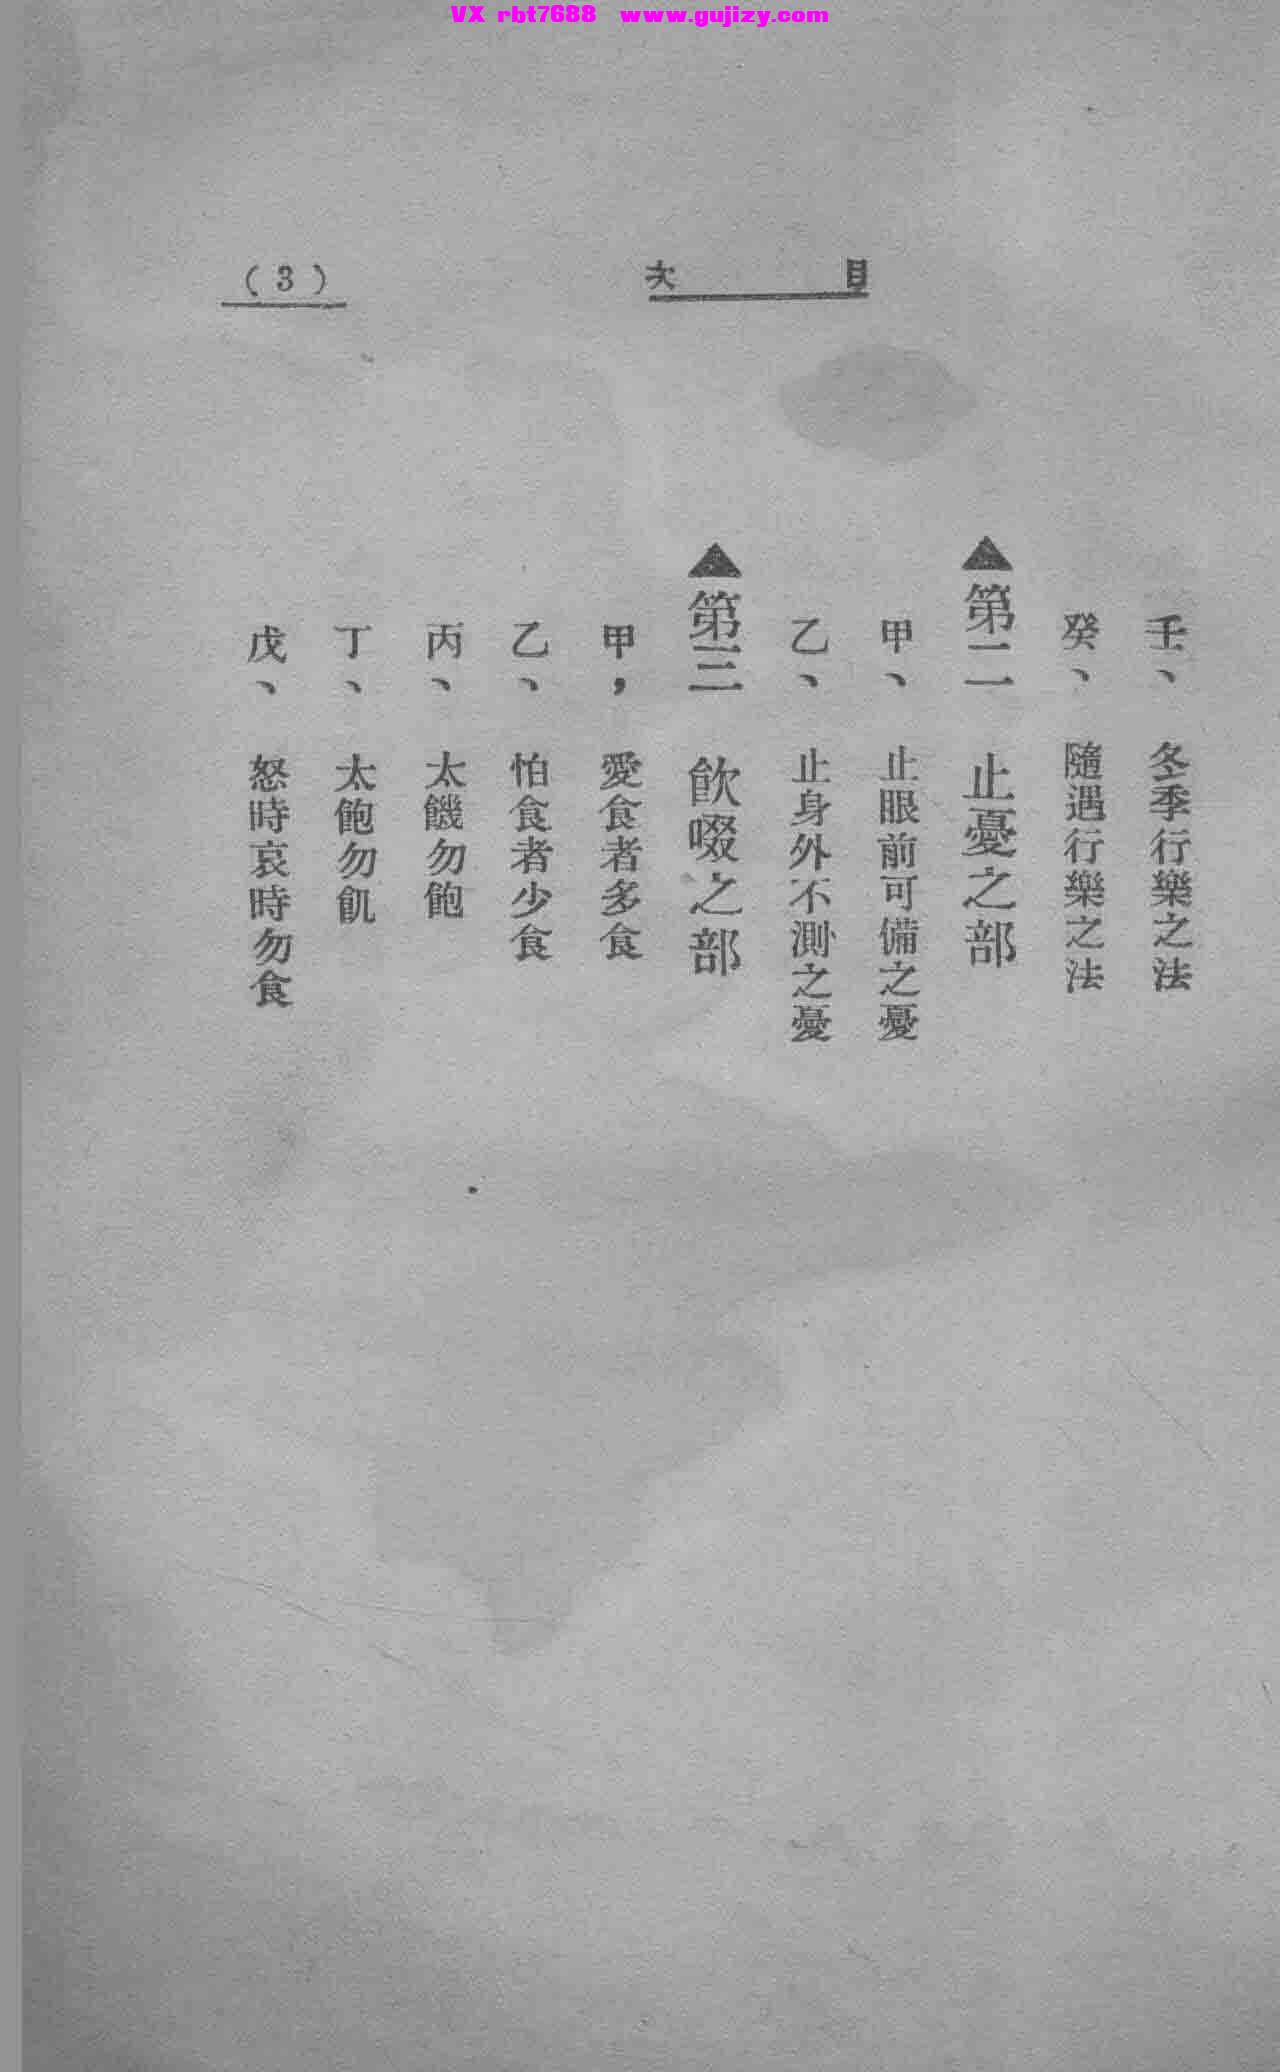 VX rbt7688 www.gujizy.com
目次
(3)
壬、冬季行樂之法
癸、隨遇行樂之法
▲第二 止憂之部
甲、止眼前可備之憂
乙、止身外不測之憂
▲第三 飲啜之部
甲，愛食者多食
乙、怕食者少食
丙、太饑勿飽
丁、太飽勿飢
戊、怒時哀時勿食